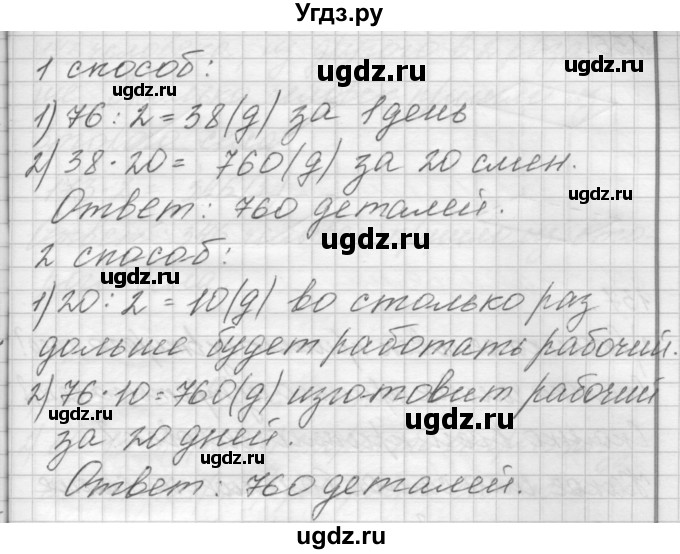 Угдз.ру
1 способ:
ugdz.ru
ugdz.ru
ugdz.ru
1) 76 : 2 = 38 (д) за 1 день
2) 38 · 20 = 760 (д) за 20 смен.
ugdz.ru
ugdz.ru
Ответ: 760 деталей.
ugdz.ru
2 способ:
ugdz.ru
ugdz.ru
1) 20 : 2 = 10 (д) во столько раз
дольше будет работать рабочий.
ugdz.ru
ugdz.ru
2) 76 · 10 = 760 (д) изготовит рабочий
ugdz.ru
ugdz.ru
за 20 дней.
ugdz.ru
Ответ: 760 деталей.
ugdz.ru
ugdz.ru